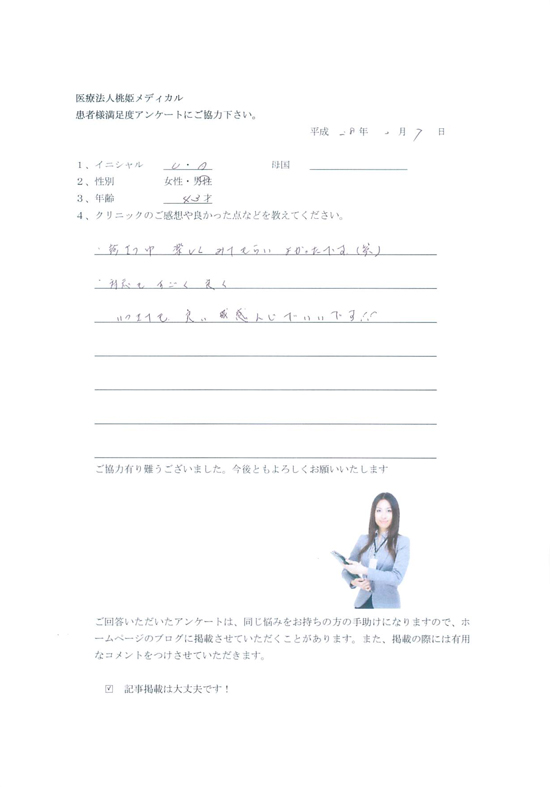 医療法人桃姫メディカル
患者様満足度アンケートにご協力下さい。
平成 28年 月 7 日
1、イニシャル 母国
2、性別 女性・男性
3、年齢 43才
4、クリニックのご感想や良かった点などを教えてください。
・何より みてもらい よかったです(笑)
・対応も すごく 良く
いつまでも 良い 感じ いいです!!
ご協力有り難うございました。今後ともよろしくお願いいたします
ご回答いただいたアンケートは、同じ悩みをお持ちの方の手助けになりますので、ホ
ームページのブログに掲載させていただくことがあります。また、掲載の際には有用
なコメントをつけさせていただきます。
☑ 記事掲載は大丈夫です！